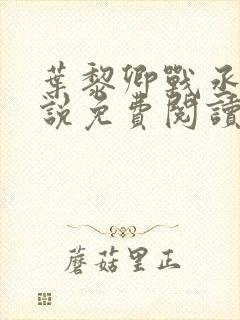 葉黎卿戰丞
說免費閱讀
蘑菇里正